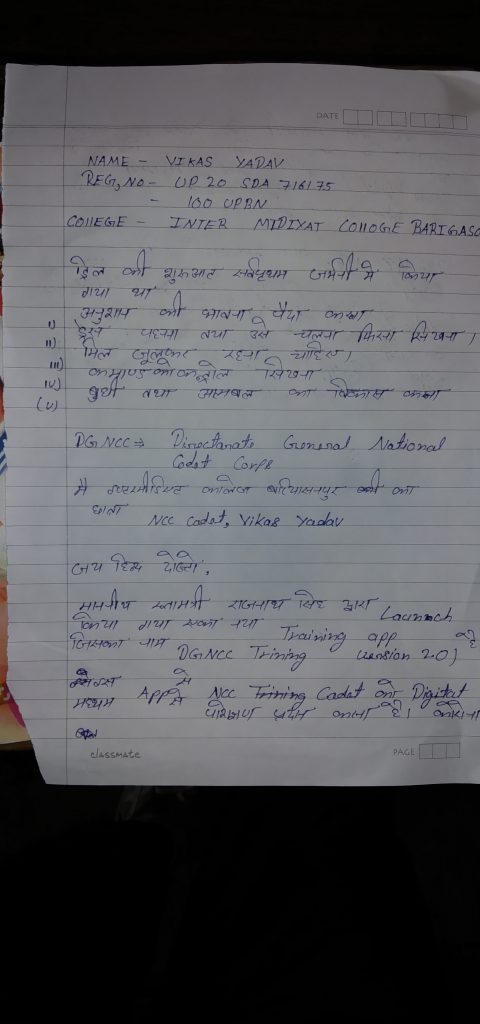 DATE
NAME - VIKAS YADAV
REG, NO - UP 20 SDA 716175
- 100 UPBN
COllEGE - INTER MIDIYAT COllOGE BARIGASO
ड्रिल की शुरुआत सर्वप्रथम जर्मनी मे किया
गया था
I) अनुशान की भावना पैदा करना
II) ड्रेस पहनना तथा उसे चलना फिरना सिखना।
III) मिल जुलकर रहना चाहिए।
IV) कमाण्ड को कन्ट्रोल सिखना
(V) तथा का विकास करना
DG NCC ⇒ Directanate General National
Codet Corps
मै कालेज का
छात्र
NCC Cadet, Vikas Yadav
जय हिन्द दोस्तो,
राजनाथ सिंह द्वारा Launch
किया गया नया Training app है
जिसका नाम DGNCC Trining version 2.0)
मे
मध्यम App से NCC Trining Cadet को Digital
प्रदान करना है।
classmate
PAGE